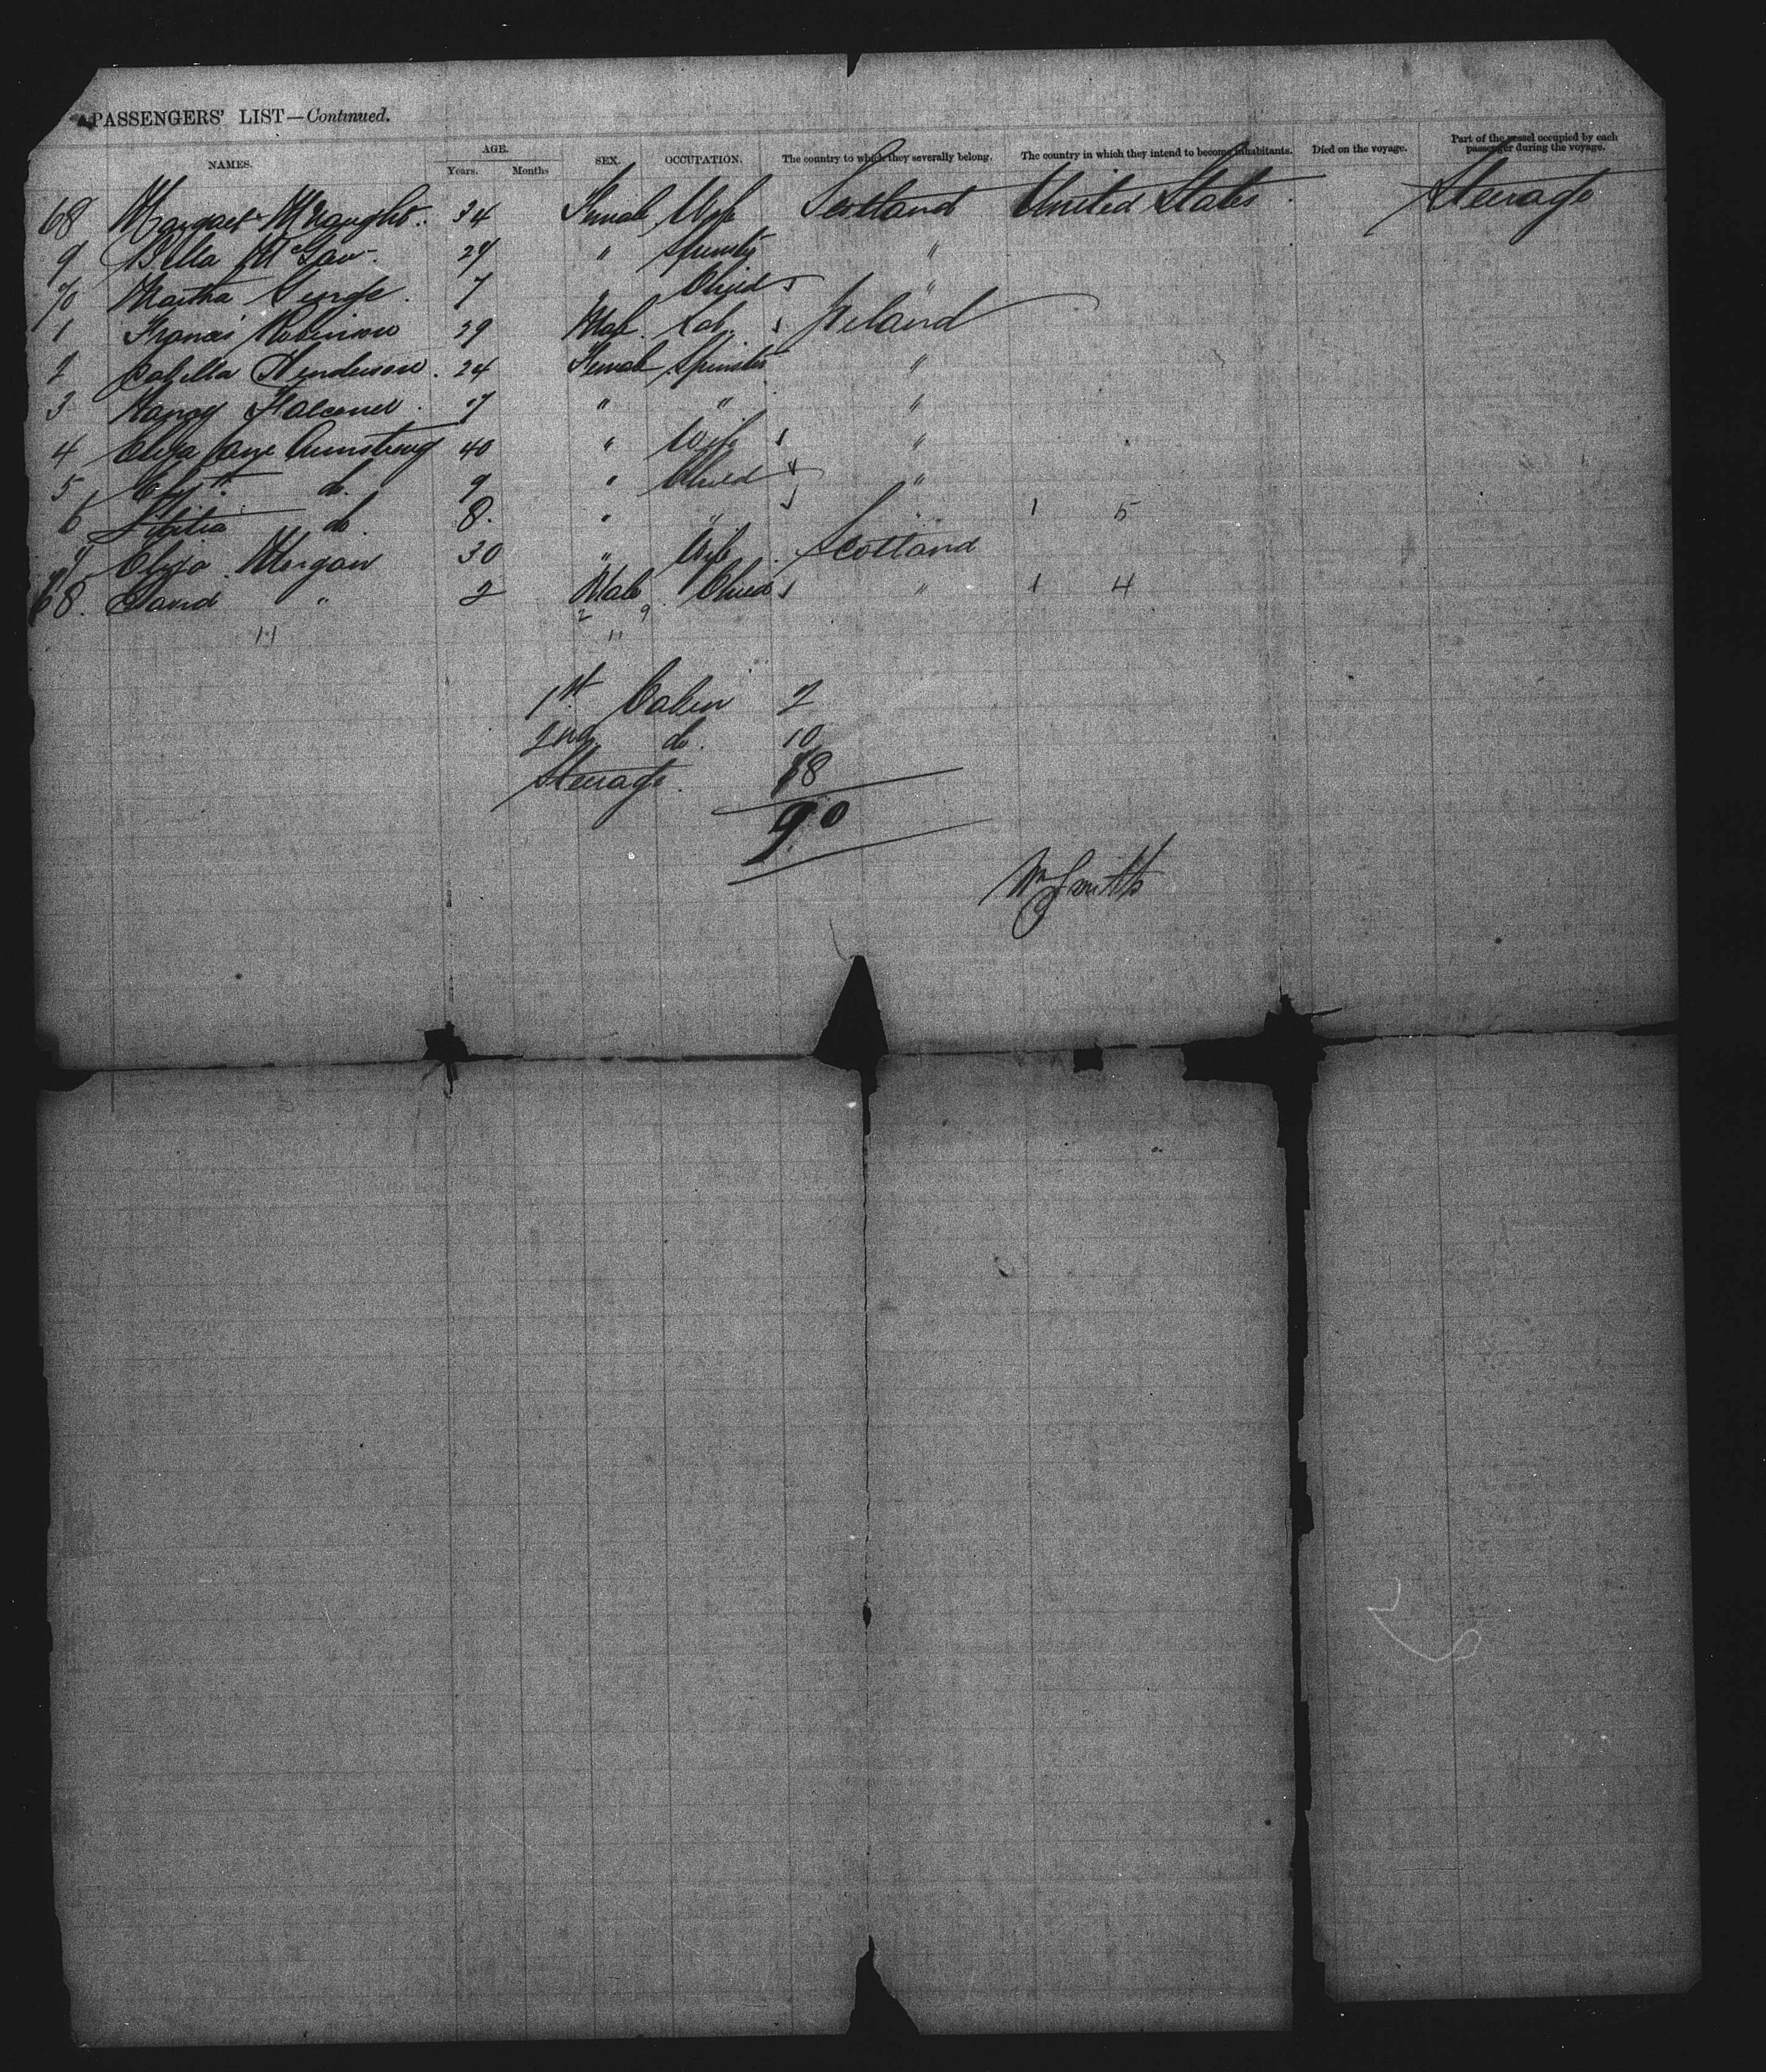 PASSENGERS' LIST—Continued.
NAMES. AGE. Years. Months SEX. OCCUPATION. The country to which they severally belong. The country in which they intend to become inhabitants. Died on the voyage. Part of the vessel occupied by each passenger during the voyage.
68 Margaret McNaught. 34 Female Wife Scotland United States Steerage
9 Bella McGaw. 24 " Spinster "
70 Martha George. 7 " Child "
1 Francis Robinson 29 Male Lab. Ireland
2 Isabella Henderson. 24 Female Spinster "
3 Nancy Falconer. " " "
4 Eliza Jane Armstrong 40 " Wife "
5 Elizth. do. 9 " Child "
6 Letitia do. 8. " " 1 5
7 Eliza Morgan 30 " Wife Scotland
78. David " 2 Male Child " 1 4
2 9
11 11
1st Cabin 2
2nd do. 10
Steerage. 78
90
Wm Smith